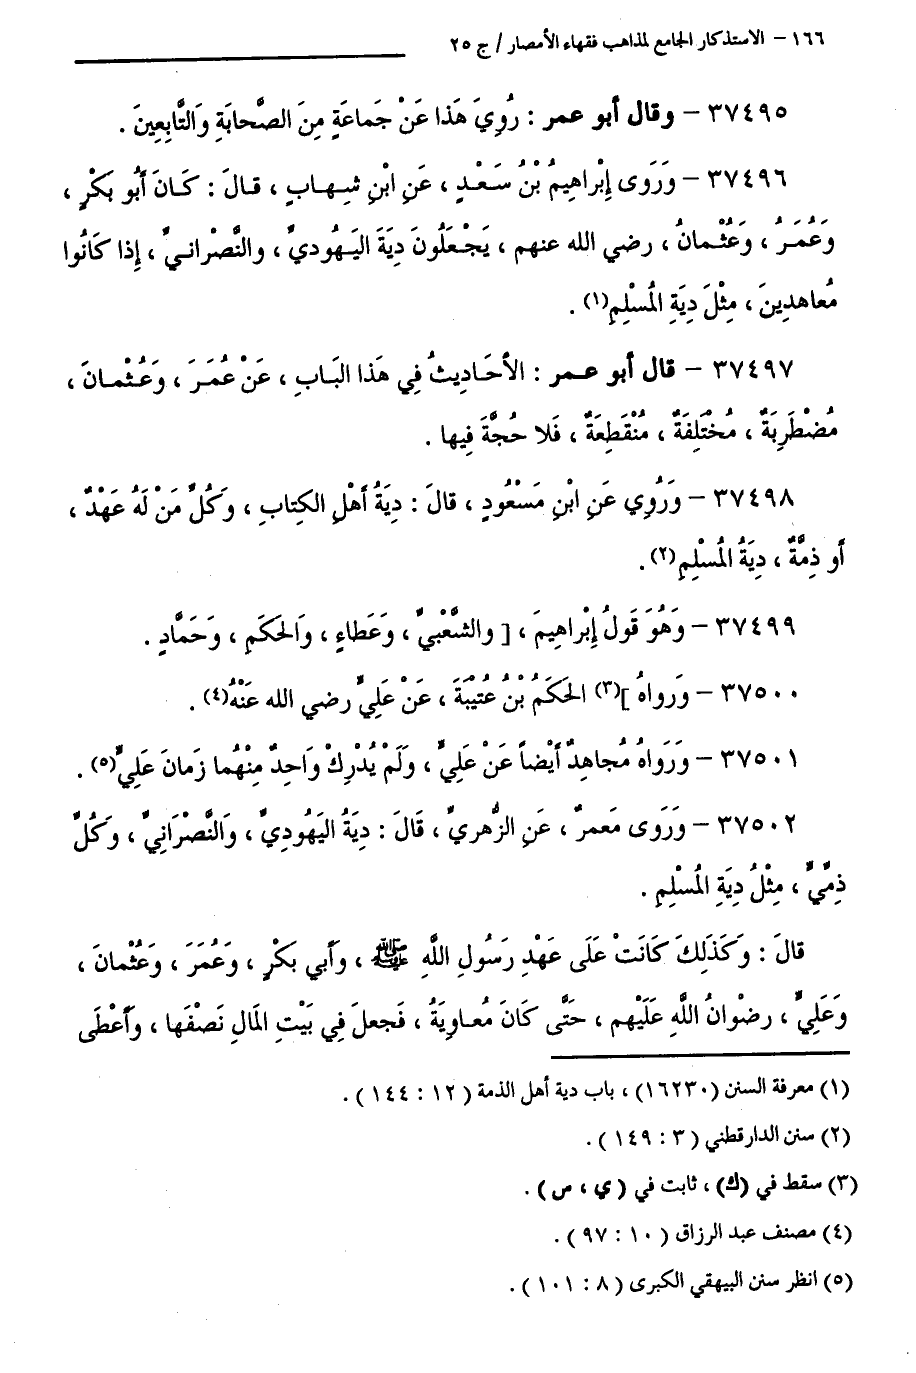 ١٦٦ – الاستذكار الجامع لمذاهب فقهاء الأمصار / ج ٢٥
٣٧٤٩٥ – وقال أبو عمر : رُوِيَ هَذا عَنْ جَماعَةٍ مِنَ الصَّحابَةِ وَالتَّابِعِينَ .
٣٧٤٩٦ – وَرَوى إِبْراهِيمُ بْنُ سَعْدٍ ، عَنِ ابْنِ شِهابٍ ، قالَ : كَانَ أَبُو بَكْرٍ ،
وَعُمَرُ ، وَعُثْمانُ ، رضي الله عنهم ، يَجْعَلُونَ دِيَةَ اليَهُوديِّ ، والنَّصْرانيِّ ، إِذا كَانُوا
مُعاهدِينَ ، مِثْلَ دِيَةِ المُسْلِمِ(١) .
٣٧٤٩٧ – قال أبو عمر : الأحَاديثُ فِي هَذا البَابِ ، عَنْ عُمَرَ ، وَعُثْمانَ ،
مُضْطَرِبَةٌ ، مُخْتَلِفَةٌ ، مُنْقَطِعَةٌ ، فَلا حُجَّةَ فِيها .
٣٧٤٩٨ – وَرُوِي عَنِ ابْنِ مَسْعُودٍ ، قالَ : دِيَةُ أهْلِ الكِتابِ ، وَكُلِّ مَنْ لَهُ عَهْدٌ ،
أو ذِمَّةٌ ، دِيَةُ المُسْلِمِ(٢) .
٣٧٤٩٩ – وَهُوَ قَولُ إِبْراهِيمَ ، [ والشَّعْبِيِّ ، وَعَطاءٍ ، وَالحَكَمِ ، وَحَمَّادٍ .
٣٧٥٠٠ – وَرواهُ ](٣) الحَكَمُ بْنُ عُتَيْبَةَ ، عَنْ عَلِيٍّ رضي الله عَنْهُ(٤) .
٣٧٥٠١ – وَرَوَاهُ مُجاهِدٌ أيْضاً عَنْ عَلِيٍّ ، وَلَمْ يُدْرِكْ وَاحِدٌ مِنْهُما زَمانَ عَلِيٍّ(٥) .
٣٧٥٠٢ – وَرَوَى مَعمرٌ ، عَنِ الزُّهريِّ ، قَالَ : دِيَةُ اليَهُودِيِّ ، وَالنَّصْرَانِيِّ ، وَكُلِّ
ذِمِّيٍّ ، مِثْلُ دِيَةِ المُسْلِمِ .
قالَ : وَكَذَلِكَ كَانَتْ عَلَى عَهْدِ رَسُولِ اللَّهِ ﷺ ، وَأَبي بَكْرٍ ، وَعُمَرَ ، وَعُثْمانَ ،
وَعَلِيٍّ ، رضْوانُ اللَّهِ عَلَيْهم ، حَتَّى كَانَ مُعاوِيَةُ ، فَجعلَ فِي بَيْتِ المَالِ نَصْفَها ، وَأَعْطَى
(١) معرفة السنن (١٦٢٣٠) ، باب دية أهل الذمة ( ١٢ : ١٤٤ ) .
(٢) سنن الدارقطني ( ٣ : ١٤٩ ) .
(٣) سقط في (ك) ، ثابت في ( ي ، ص ) .
(٤) مصنف عبد الرزاق ( ١٠ : ٩٧ ) .
(٥) انظر سنن البيهقي الكبرى ( ٨ : ١٠١ ) .